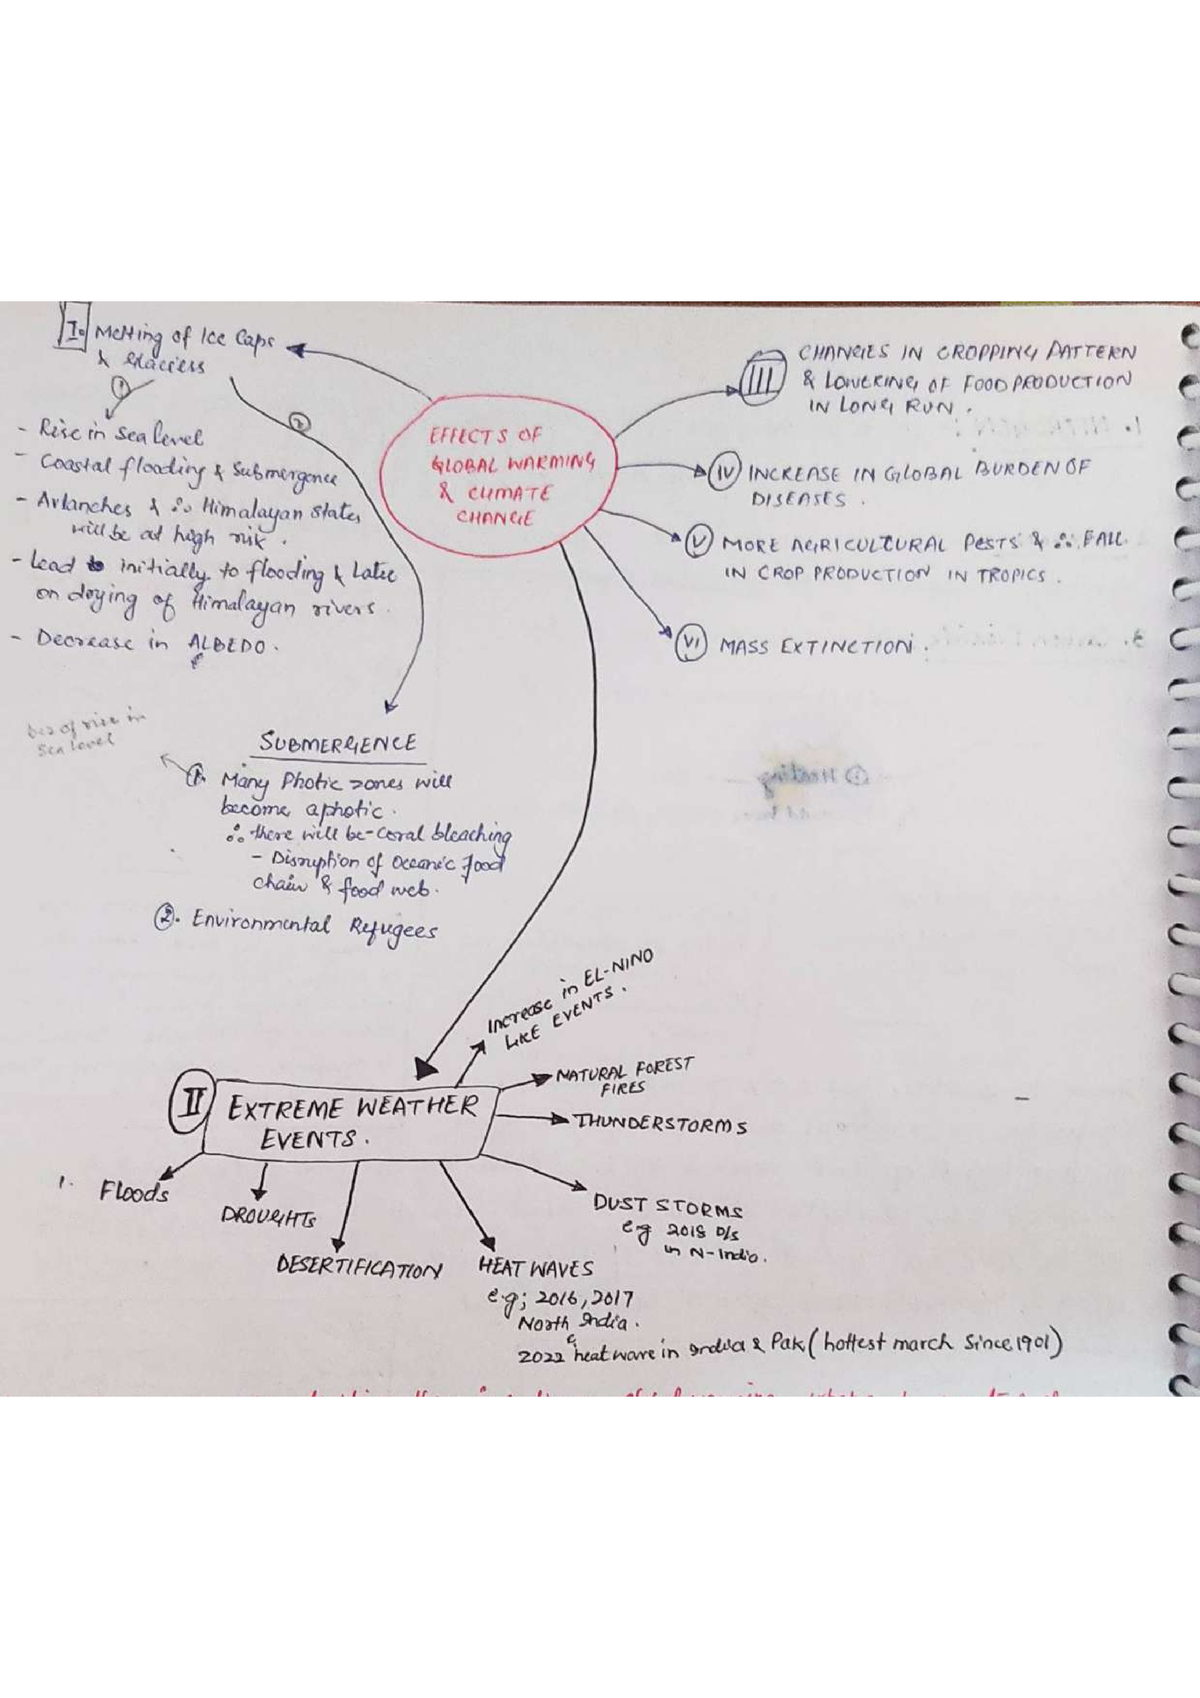 I. Melting of Ice Caps
& Glaciers
1
- Rise in sea level
- Coastal flooding & Submergence
- Avlanches & ∴ Himalayan states
will be at high risk.
- Lead to initially to flooding & Later
on drying of Himalayan rivers.
- Decrease in ALBEDO.
2
EFFECTS OF
GLOBAL WARMING
& CLIMATE
CHANGE
III CHANGES IN CROPPING PATTERN
& LOWERING OF FOOD PRODUCTION
IN LONG RUN.
IV INCREASE IN GLOBAL BURDEN OF
DISEASES.
V MORE AGRICULTURAL PESTS & ∴ FALL
IN CROP PRODUCTION IN TROPICS.
VI MASS EXTINCTION.
of rise in
Sea level
SUBMERGENCE
1. Many Photic zones will
become aphotic.
∴ there will be - coral bleaching
- Disruption of oceanic food
chain & food web.
2. Environmental Refugees
Increase in EL-NINO
LIKE EVENTS.
NATURAL FOREST
FIRES
THUNDERSTORMS
II EXTREME WEATHER
EVENTS.
1. Floods
DROUGHTS
DESERTIFICATION
HEAT WAVES
e.g; 2016, 2017
North India.
2022 heat wave in India & Pak (hottest march Since 1901)
DUST STORMS
e.g 2018 D/s
in N-India.